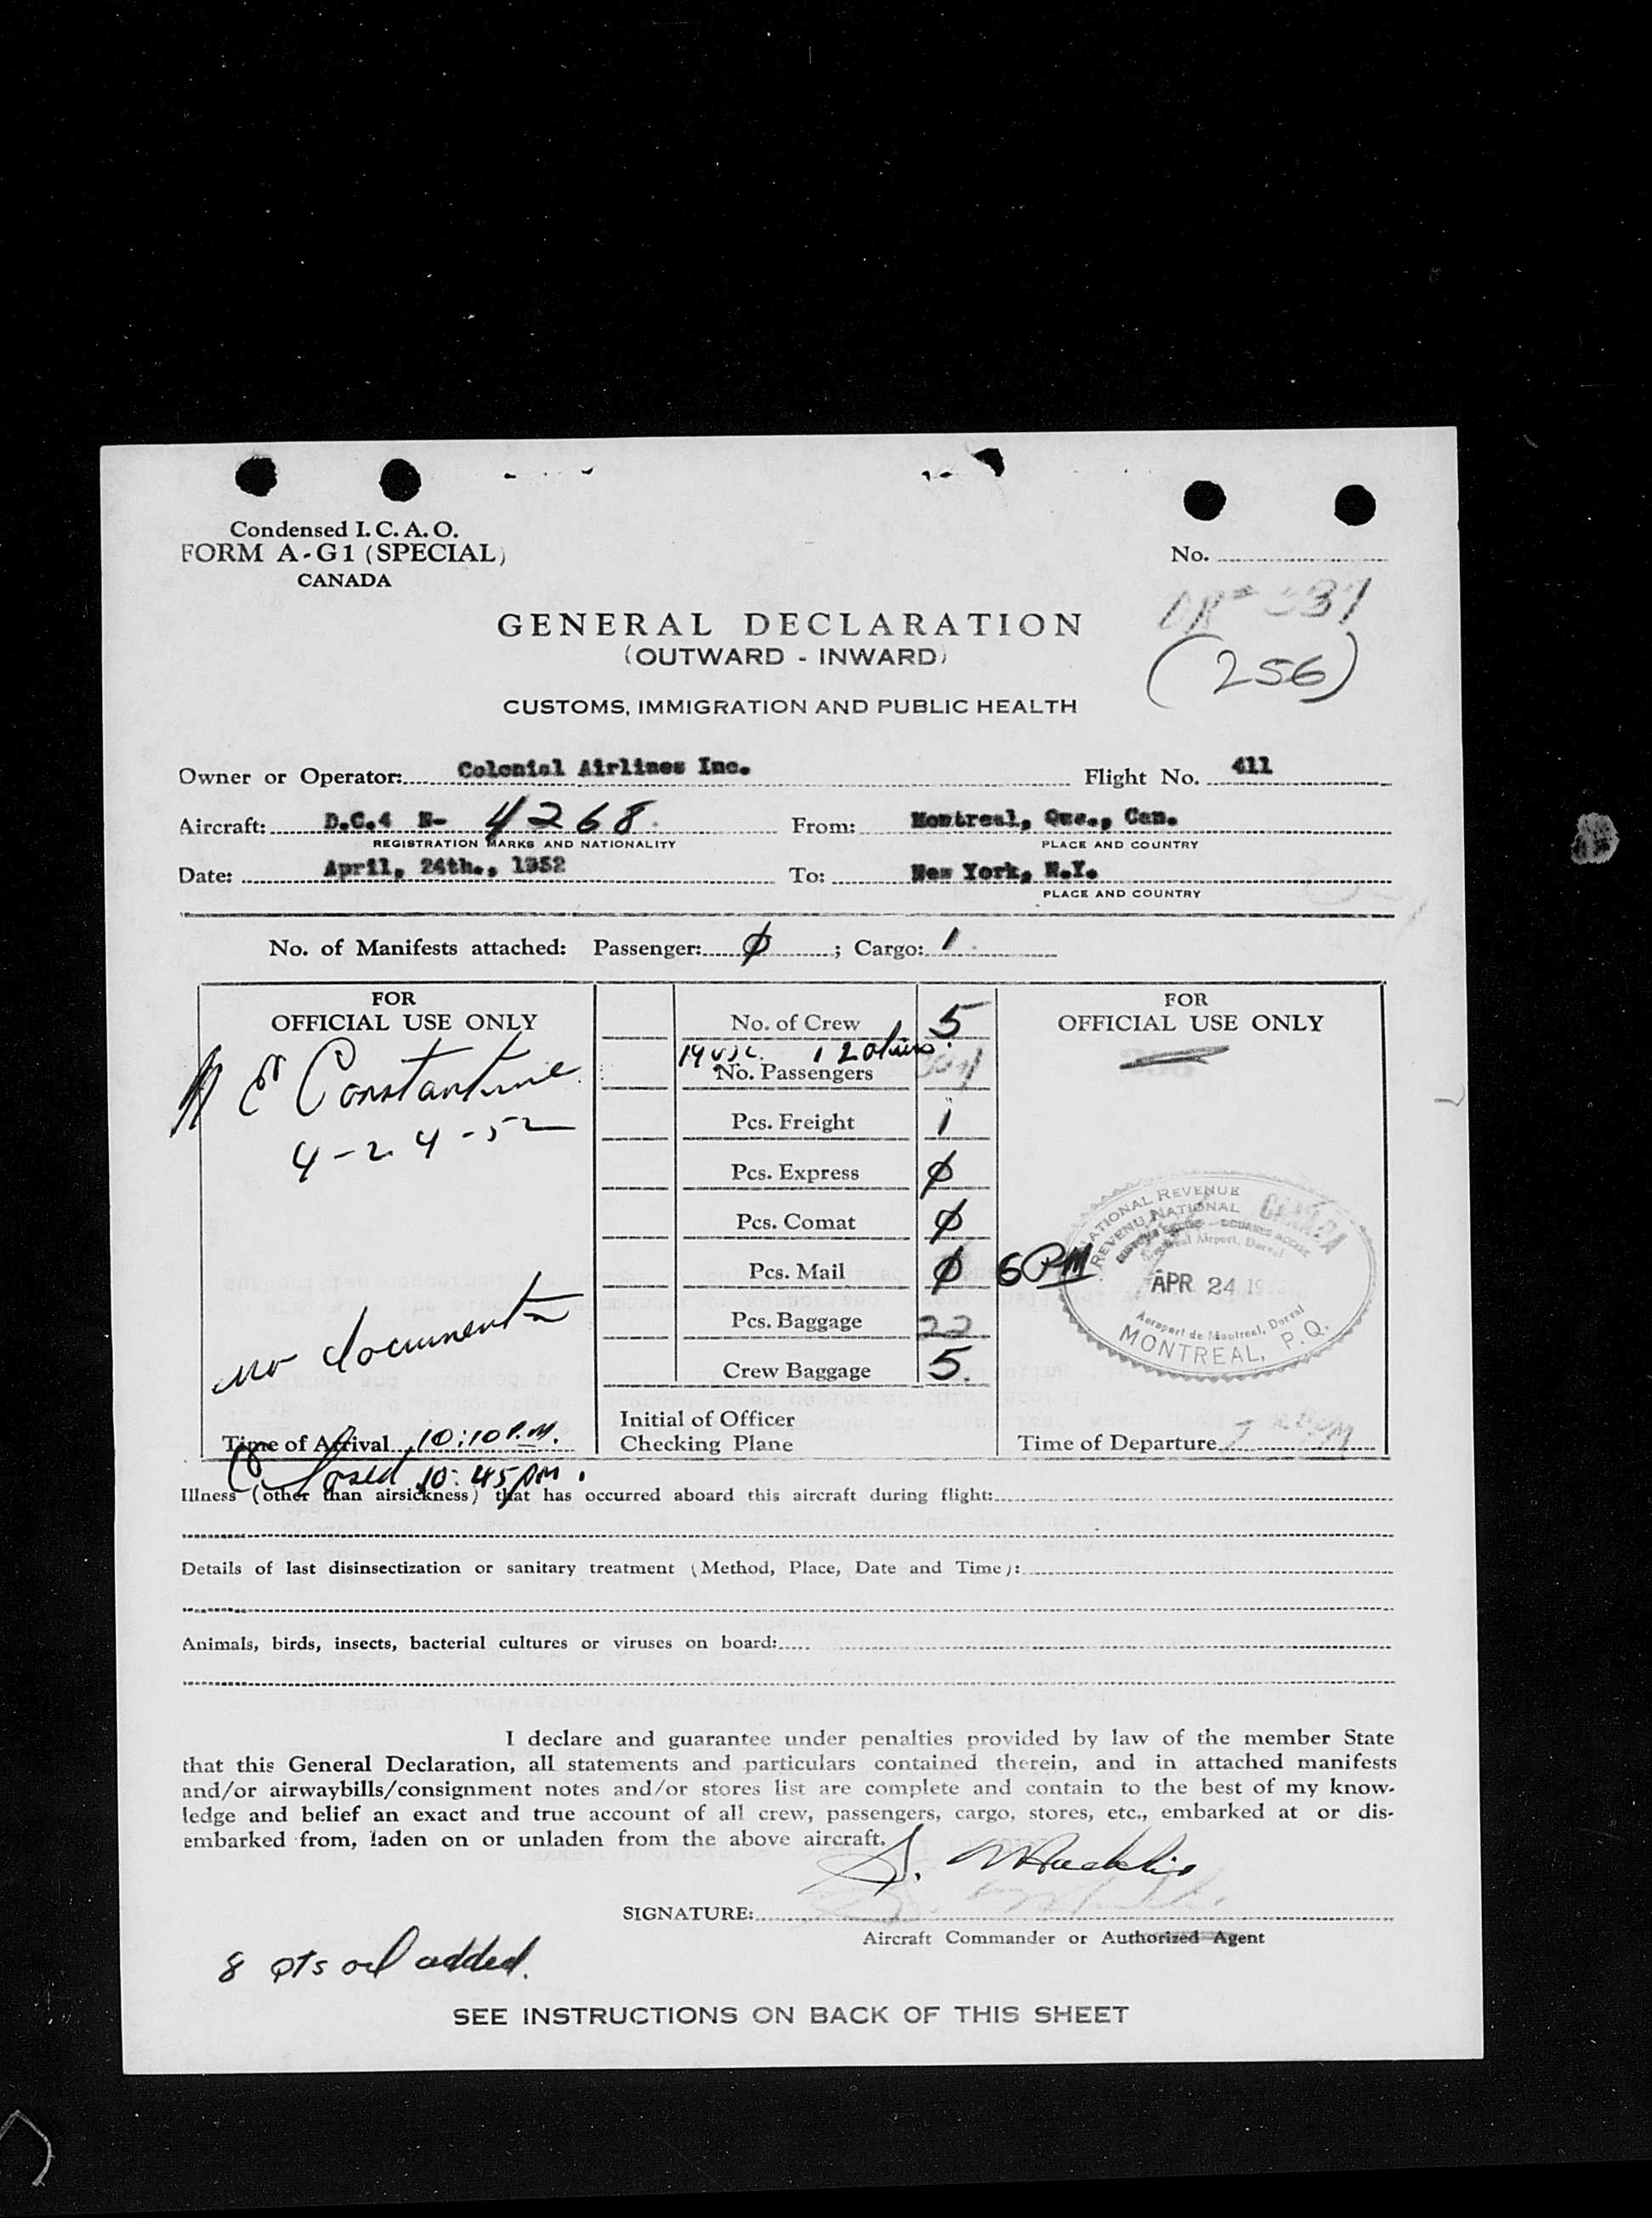 Condensed I. C. A. O.
FORM A-G1 (SPECIAL)
CANADA
No.
337
(256)
GENERAL DECLARATION
(OUTWARD - INWARD)
CUSTOMS, IMMIGRATION AND PUBLIC HEALTH
Owner or Operator: Colonial Airlines Inc. Flight No. 411
Aircraft: D.C.4 N- 4268 From: Montreal, Que., Can.
REGISTRATION MARKS AND NATIONALITY PLACE AND COUNTRY
Date: April, 24th., 1952 To: New York, N.Y.
PLACE AND COUNTRY
No. of Manifests attached: Passenger: ∅ ; Cargo: 1
FOR
OFFICIAL USE ONLY
N E Constantine
4-24-52
no documents
Time of Arrival 10:10 P.M.
Closed 10:45 PM.
No. of Crew 5
19 USC. 12 others
No. Passengers
Pcs. Freight 1
Pcs. Express ∅
Pcs. Comat ∅
Pcs. Mail ∅
Pcs. Baggage 22
Crew Baggage 5
Initial of Officer
Checking Plane
FOR
OFFICIAL USE ONLY
6 PM
NATIONAL REVENUE
REVENU NATIONAL
CANADA
Montreal Airport, Dorval
APR 24 19
Aeroport de Montreal, Dorval
MONTREAL, P.Q.
Time of Departure 7 PM
Illness (other than airsickness) that has occurred aboard this aircraft during flight:
Details of last disinsectization or sanitary treatment (Method, Place, Date and Time):
Animals, birds, insects, bacterial cultures or viruses on board:
I declare and guarantee under penalties provided by law of the member State
that this General Declaration, all statements and particulars contained therein, and in attached manifests
and/or airwaybills/consignment notes and/or stores list are complete and contain to the best of my know-
ledge and belief an exact and true account of all crew, passengers, cargo, stores, etc., embarked at or dis-
embarked from, laden on or unladen from the above aircraft.
SIGNATURE:
Aircraft Commander or Authorized Agent
8 qts oil added.
SEE INSTRUCTIONS ON BACK OF THIS SHEET